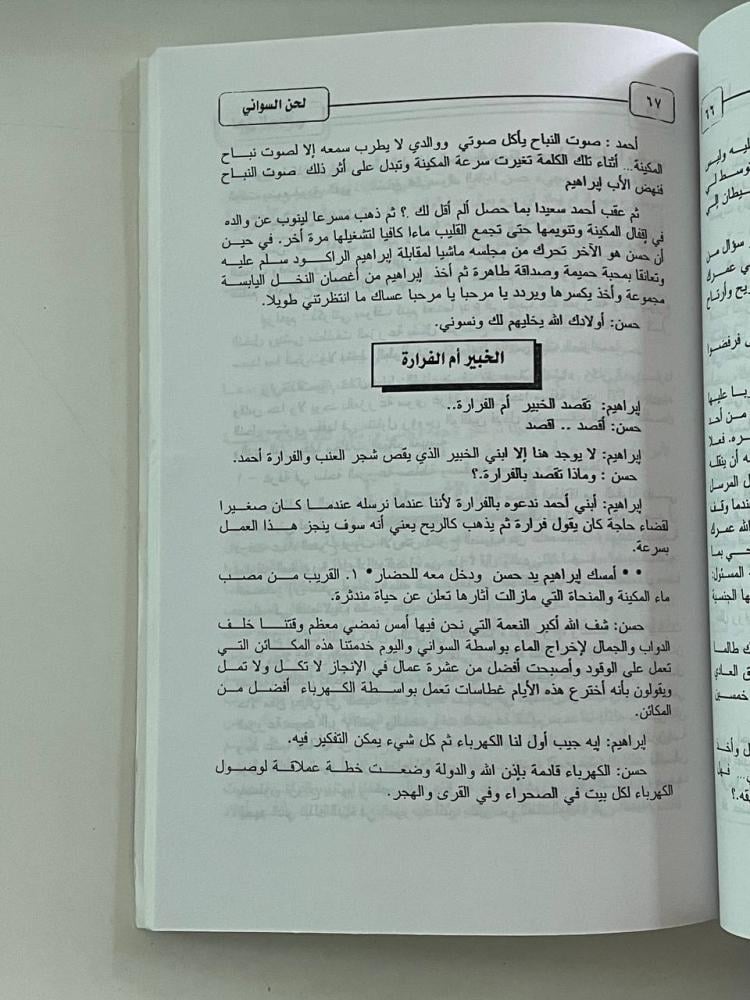 ٦٧
لحن السواني
أحمد : صوت النباح يأكل صوتي ووالدي لا يطرب سمعه إلا لصوت نباح
المكينة... أثناء تلك الكلمة تغيرت سرعة المكينة وتبدل على أثر ذلك صوت النباح
فنهض الأب إبراهيم
ثم عقب أحمد سعيدا بما حصل ألم أقل لك .؟ ثم ذهب مسرعا لينوب عن والده
في إقفال المكينة وتنويمها حتى تجمع القليب ماءا كافيا لتشغيلها مرة أخر. في حين
أن حسن هو الآخر تحرك من مجلسه ماشيا لمقابلة إبراهيم الراكود سلم عليه
وتعانقا بمحبة حميمة وصداقة طاهرة ثم أخذ إبراهيم من أغصان النخل اليابسة
مجموعة وأخذ يكسرها ويردد يا مرحبا يا مرحبا عساك ما انتظرتني طويلا.
حسن: أولادك الله يخليهم لك ونسوني.
الخبير أم الفرارة
إبراهيم: تقصد الخبير أم الفرارة..
حسن: أقصد .. اقصد
إبراهيم: لا يوجد هنا إلا ابني الخبير الذي يقص شجر العنب والفرارة أحمد.
حسن : وماذا تقصد بالفرارة.؟
إبراهيم: أبني أحمد ندعوه بالفرارة لأننا عندما نرسله عندما كان صغيرا
لقضاء حاجة كان يقول فرارة ثم يذهب كالريح يعني أنه سوف ينجز هذا العمل
بسرعة.
• • أمسك إبراهيم يد حسن ودخل معه للحضار• ١. القريب من مصب
ماء المكينة والمنحاة التي مازالت آثارها تعلن عن حياة مندثرة.
حسن: شف الله أكبر النعمة التي نحن فيها أمس نمضي معظم وقتنا خلف
الدواب والجمال لإخراج الماء بواسطة السواني واليوم خدمتنا هذه المكائن التي
تعمل على الوقود وأصبحت أفضل من عشرة عمال في الإنجاز لا تكل ولا تمل
ويقولون بأنه أخترع هذه الأيام غطاسات تعمل بواسطة الكهرباء أفضل من
المكائن.
إبراهيم: إيه جيب أول لنا الكهرباء ثم كل شيء يمكن التفكير فيه.
حسن: الكهرباء قادمة بإذن الله والدولة وضعت خطة عملاقة لوصول
الكهرباء لكل بيت في الصحراء وفي القرى والهجر.